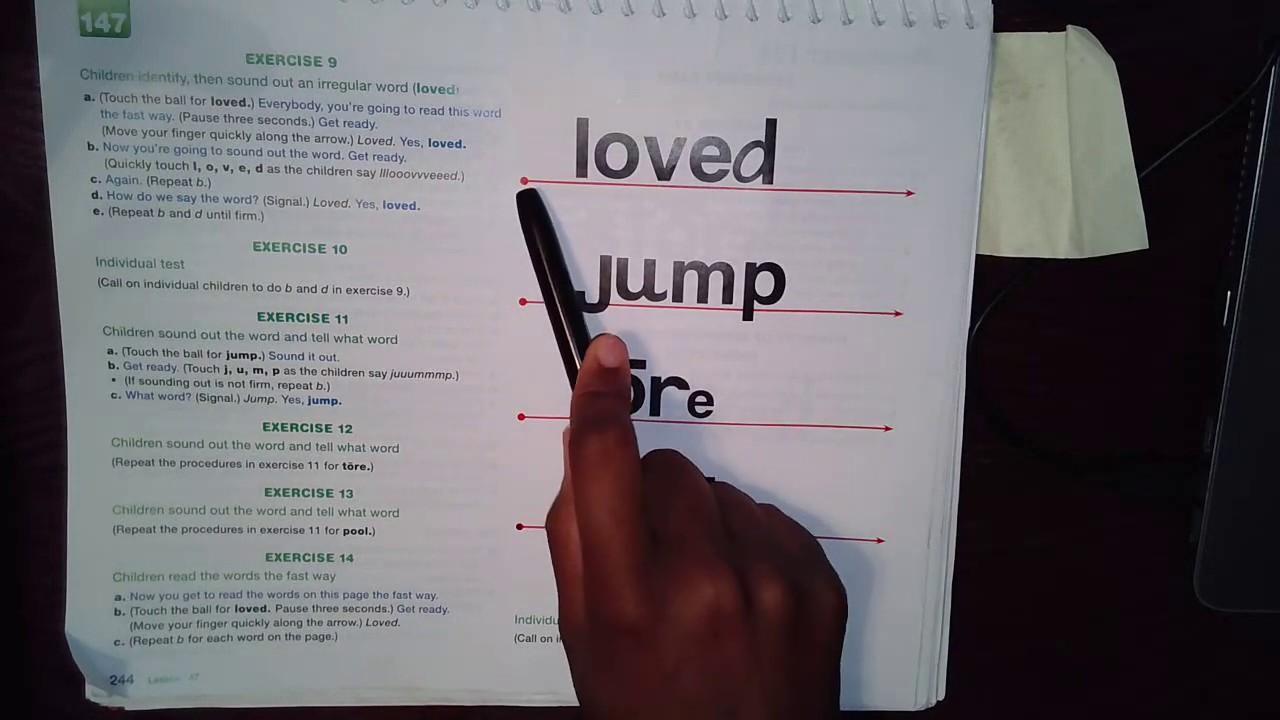 147
EXERCISE 9
Children identify, then sound out an irregular word (loved)
a. (Touch the ball for loved.) Everybody, you're going to read this word
the fast way. (Pause three seconds.) Get ready.
(Move your finger quickly along the arrow.) Loved. Yes, loved.
b. Now you're going to sound out the word. Get ready.
(Quickly touch l, o, v, e, d as the children say lllooovvveeed.)
c. Again. (Repeat b.)
d. How do we say the word? (Signal.) Loved. Yes, loved.
e. (Repeat b and d until firm.)
EXERCISE 10
Individual test
(Call on individual children to do b and d in exercise 9.)
EXERCISE 11
Children sound out the word and tell what word
a. (Touch the ball for jump.) Sound it out.
b. Get ready. (Touch j, u, m, p as the children say juuummmp.)
• (If sounding out is not firm, repeat b.)
c. What word? (Signal.) Jump. Yes, jump.
EXERCISE 12
Children sound out the word and tell what word
(Repeat the procedures in exercise 11 for tōre.)
EXERCISE 13
Children sound out the word and tell what word
(Repeat the procedures in exercise 11 for pool.)
EXERCISE 14
Children read the words the fast way
a. Now you get to read the words on this page the fast way.
b. (Touch the ball for loved. Pause three seconds.) Get ready.
(Move your finger quickly along the arrow.) Loved.
c. (Repeat b for each word on the page.)
244 Lesson
loved
jump
ōre
(Call on